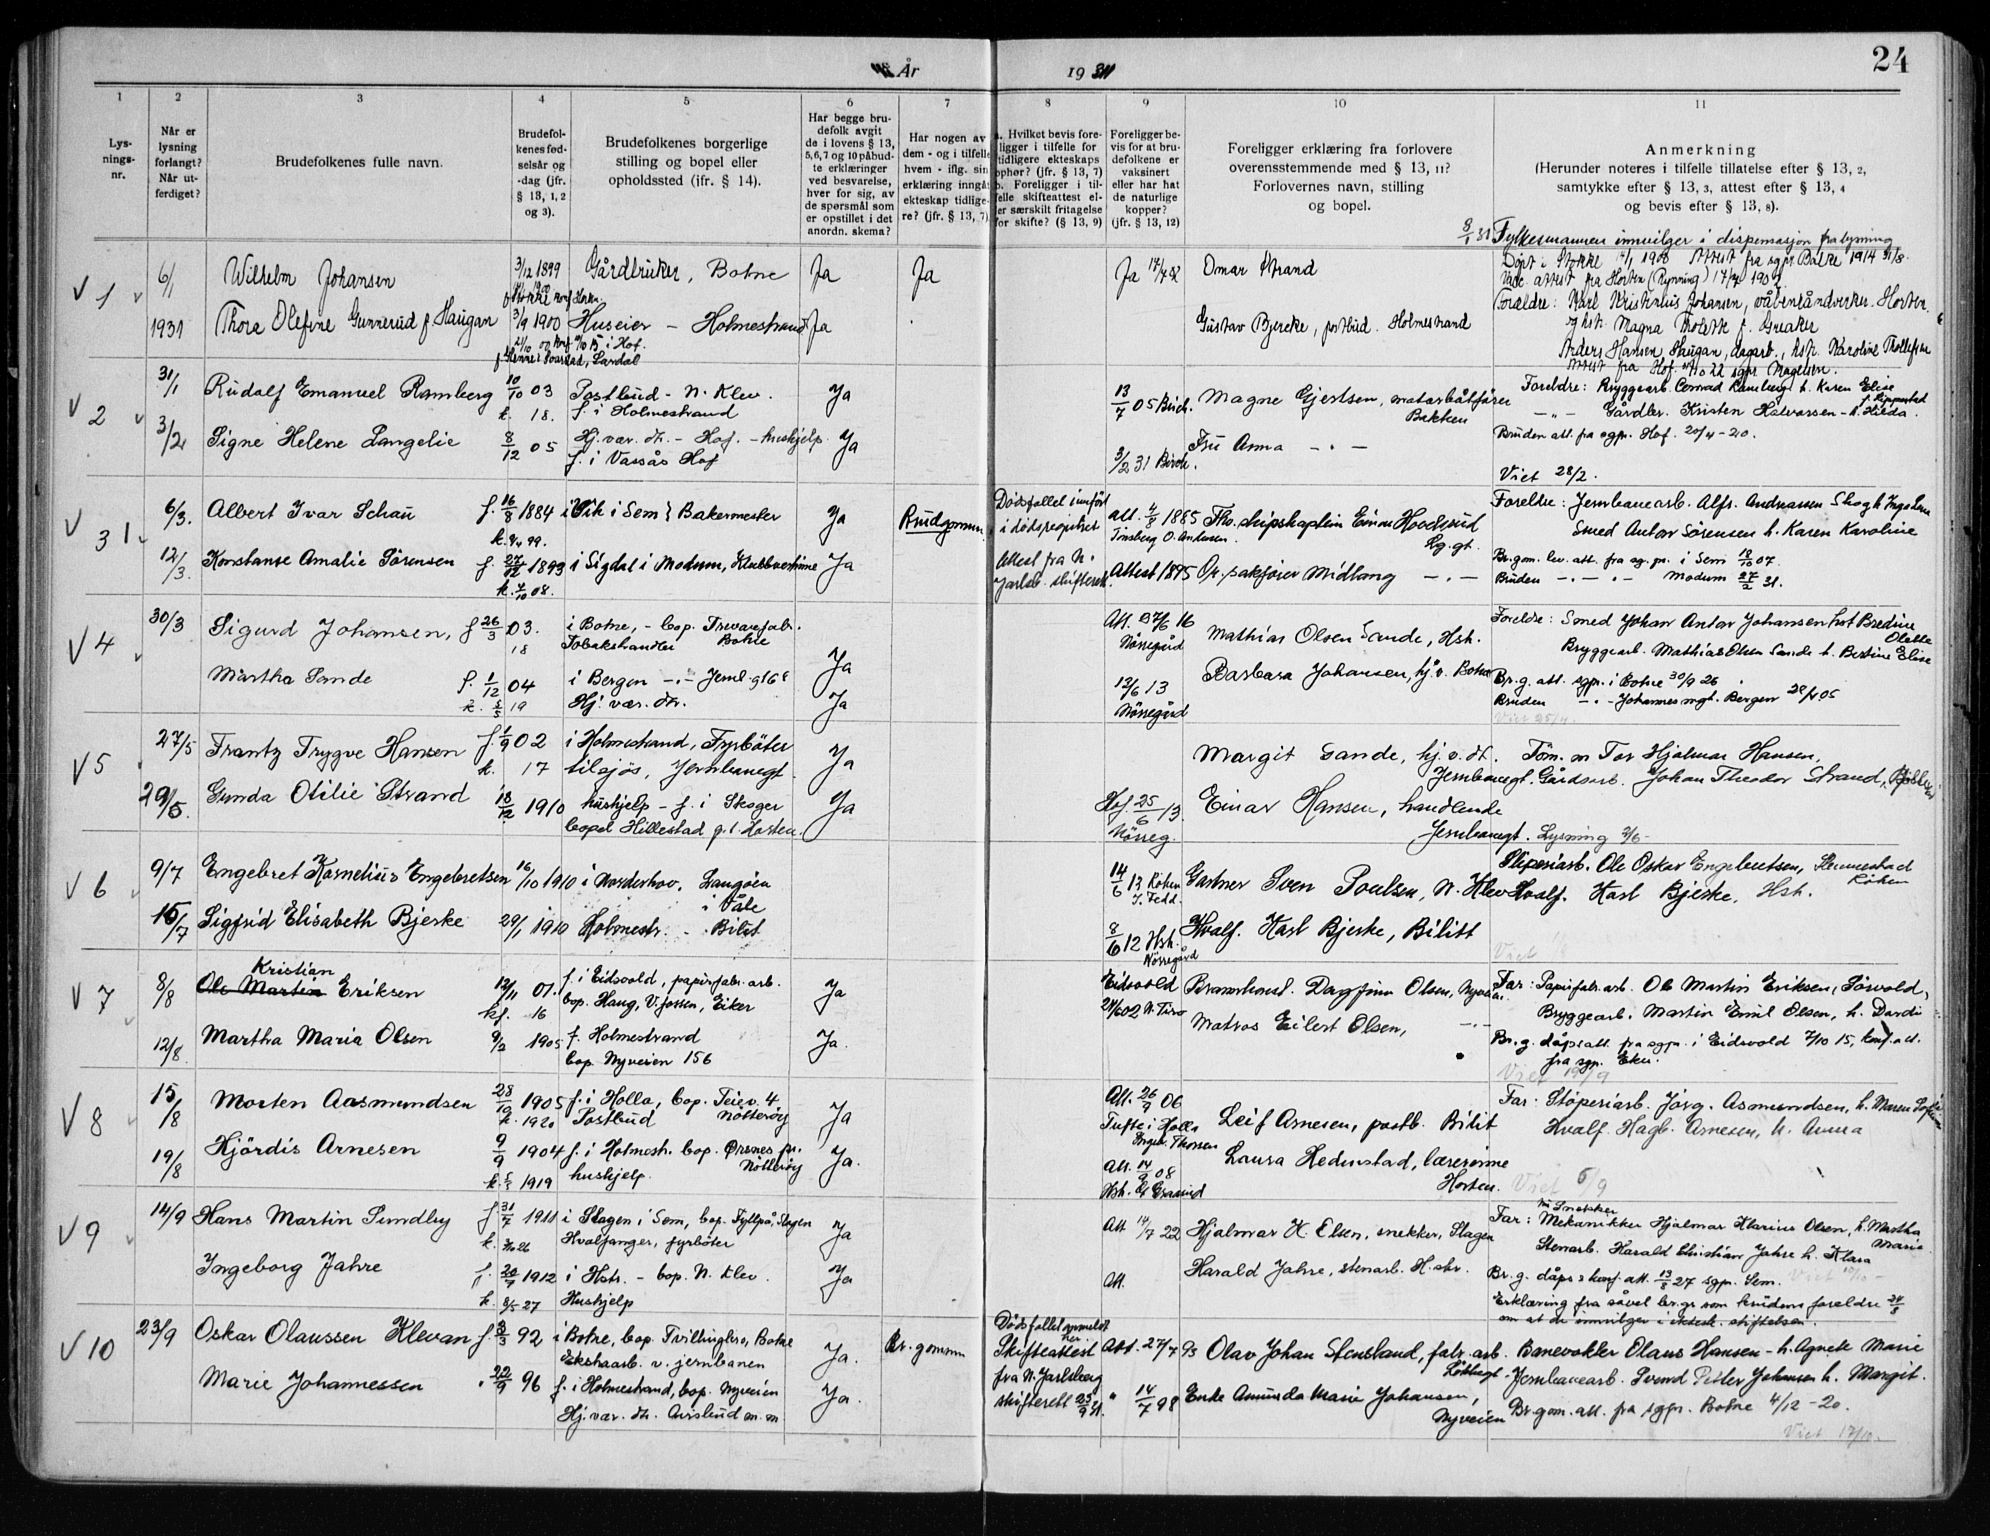 År
19 31
24
1
2
3
4
5
6
7
8
9
10
11
Lys-
nings-
nr.
Når er
lysning
forlangt?
Når ut-
ferdiget?
Brudefolkenes fulle navn.
Brudefol-
kenes fød-
selsår og
-dag (jfr.
§ 13, 1, 2
og 3).
Brudefolkenes borgerlige
stilling og bopel eller
opholdssted (ifr. § 14).
Har begge bru-
defolk avgit
de i lovens § 13,
5,6,7 og 10 påbud-
te erklæringer
ved besvarelse,
hver for sig, av
de spørsmål som
er opstillet i det
anordn. skema?
Har nogen av
dem - og i tilfelle
hvem - iflg. sin
erklæring inngå
ekteskap tidlige-
re? (jfr. § 13, 7)
a. Hvilket bevis fore-
ligger i tilfelle for
tidligere ekteskaps
ophør? (jfr. § 13, 7)
b. Foreligger i til-
felle skifteattest el-
ler særskilt fritagelse
for skifte? (§ 13, 9)
Foreligger be-
vis for at bru-
defolkene er
vaksinert
eller har hat
de naturlige
kopper?
(jfr. § 13, 12)
Foreligger erklæring fra forlovere
overensstemmende med § 13, 11?
Forlovernes navn, stilling
og bopel.
Anmerkning
(Herunder noteres i tilfelle tillatelse efter § 13, 2,
samtykke efter § 13, 3, attest efter § 13, 4
og bevis efter § 13, 8).
8/1 31 Fylkesmannen innvilger i dispensasjon fra lysning
V 1
6/1
1931
Wilhelm Johansen
3/12 1899
Gårdbruker, Botne
Ja
Ja
Ja 17/7 02
Omar Strand
Døpt i Stokke 14/1 1900 Attest fra sgpr. Balke 1914 31/8
Vacc. attest fra Horten (Rynning) 17/7 1902
Thora Olefine Gunnerud f. Haugan
3/9 1900
Huseier - Holmestrand
Ja
Gustav Bjerke, postbud. Holmestrand
Foreldre: Karl Kristinius Johansen, våbenhåndverker. Horten
og hst. Magna Tholette f. Greaker
Anders Hansen Haugan, dagarb., hst. Karoline Thollefsne
Attest fra Hof 22 sgpr. Magelsen.
V 2
31/1
3/2
Rudolf Emanuel Ramberg
10/10 03
k. 18.
Postbud - N. Klev.
f. i Holmestrand
Ja
13/7 05 Birch.
Magne Gjertsen, motorbåtfører
Bakken
Foreldre: Bryggearb. Conrad Ramberg h. Karen Elise
f. Lippestad
Signe Helene Langelie
8/12 05
Hj. vær. dt. - Hof. - hushjelp.
f. i Vassås Hof
Ja
3/2 31 Birch.
Fru Anna - " -
- " - Gårdbr. Kristen Halvorssen - h. Hilda.
Bruden att. fra sgpr. Hof. 20/4 - 20.
Viet 28/2.
V 3
6/3.
12/3.
Albert Ivar Schau
f. 16/8 1884
k. 99.
i Vik i Sem } Bakermester
Ja
Brudgommen
Dødsfallet innført
i dødsregistret
Attest fra N.
Jarlsb. skifterett
att. 4/8 1885
Tønsberg O. Andersen.
Tho. skipskaptein Einar Hovelsrud
Lg. gt.
Foreldre: Jernbanearb. Alfr. Andreassen Skogh
Smed Anton Sørensen h. Karen Karoline
Konstanse Amalie Sørensen
f. 27/12 1893
k. 4/10 08.
i Sigdal i Modum, Klubbvertinne
Ja
Attest 1895
Or. sakfører Midlang - " -
Br.gom. lev. att. fra sg.pr. i Sem 18/10 07.
Bruden - " - " - Modum 27/2 31.
V 4
30/3
Sigurd Johansen, f 26/3 03.
18
i Botne, - bop. Trevarefabr.
Tobakshandler Botne
Ja
Att. 27/6 16
Nörregård
Mathias Olsen Sande, Hsh.
Foreldre: Smed Johan Anton Johansen hst Bredine
Olette
Bryggearb. Mathias Olsen Sande h. Bertine Elise
Martha Sande
f. 1/12 04
k. 5/5 19
i Bergen - " - Jernb.gt 6
Hj. vær. dtr.
Ja
12/6 13
Nörregård
Barbara Johansen, hj. v. Botne
Br. g. att. sgpr. i Botne 30/9 26
Bruden - " - Johannes mgt. Bergen 28/4 05
Viet 25/4
V 5
27/5
29/5.
Frantz Trygve Hansen
f. 1/9 02
k. 17
i Holmestrand, Fyrbøter
tilsjøs, Jernbanegt.
Ja
Margit Sande, hj. v. dt.
Jernbanegt.
Töm. m Tor Hjalmar Hansen,
Gårdsarb. Johan Theodor Strand,
Gunda Otilie Strand
18/12 1910
hushjelp - f. i Skoger
bopel Hillestad p.t. Horten.
Ja
Hof. 25/6 13
Nörreg.
Einar Hansen, handlende
Jernbanegt.
Lysning 2/6 -
V 6
9/7
15/7
Engebret Kornelius Engebretsen
16/10 1910
i Norderhov, Langøen
i Våle
14/6 13 Röken
Gartner Sven Poulsen, N. Klev
Sliperiarb. Ole Oskar Engebretsen,
Röken
Sigfrid Elisabeth Bjerke
29/1 1910
Holmestr. - Bilit
8/10 12 Hsh.
Nörregård
Hvalf. Karl Bjerke, Bilitt
Hvalf. Karl Bjerke, Hsh.
Viet
V 7
8/8
12/8.
Kristian
Ole Martin Eriksen
12/11 01.
kf. 16
f. i Eidsvold, papirfabr. arb.
bop. Haug, V.fossen, Eiker
Ja
Eidsvold
24/6 02
Brannkonst. Dagfinn Olsen, Nyveien.
Far: Papirfabr. arb. Ole Martin Eriksen,
Bryggearb. Martin Emil Olsen, h. Dordi
Martha Maria Olsen
9/2 1905
f. Holmestrand
bop. Nyveien 156
Ja.
Matros Eilert Olsen, - " -
Br. g. dåpsatt. fra sgpr. i Eidsvold 7/10 15, konf. att.
fra sgpr. Eker.
Viet 19/9
V 8
15/8
19/8
Morten Aasmundsen
28/10 1905
k. 1920
f. i Holla, bop. Teiev. 4
Postbud Nøtterøy
Ja
Att. 26/9 06
Tufte i Holla
Ingeb. Thorsen
Leif Arnesen, postb. Bilit
Far: Støperiarb. Jörg. Asmundsen, h. Maren Sofie
Hvalf. Hagb. Arnesen, h. Anna
Hjördis Arnesen
9/9 1904
k. 5/5 1919
f. i Holmestr. bop. Ørsnes pr.
Nötterøy
hushjelp.
Ja.
Att. 14/9 08
Hsh.
Laura Hedenstad, lærerinne
Horten.
Viet 5/9
V 9
14/9
Hans Martin Sundby
f 31/7 1911
k. 26
i Slagen i Sem, bop. Fyllpå, Slagen
Hvalfanger, fyrbøter
Ja
Att 14/7 22
Hjalmar K. Elsen, snekker, Slagen
Snekker
Far: Mekanikker Hjalmar Klarius Olsen, h. Martha
Marie
Stenarb. Harald Christian Jahre h. Klara
Ingeborg Jahre
f. 20/7 1912
k. 8/5 27
i Hstr. - bop. N. Klev.
Hushjelp
Ja
Att.
Harald Jahre, stenarb. H.str.
Br. g. dåps & konf. att. 13/8 27 sgpr. Sem. Viet 10/10 -
Erklæring fra såvel br.gs som brudens foreldre 24/8
om at de innvilger i ektesk. stiftelsen.
V 10
23/9
Oskar Olaussen Klevan
f. 8/3 92
i Botne, bop. Tvillingbro, Botne
Ekstraarb. v. jernbanen
Ja.
Br. gommen
Dødsfallet anmeldt
her.
Skifteattest
fra N. Jarlsberg
skifterett 25/9 31.
Att. 27/7 93
Olav Johan Stensland, fabr. arb.
Løkkegt.
Banevokter Olaus Hansen - h. Agnete Marie
Jernbanearb. Svend Petter Johansen h. Margit.
Marie Johannessen
" 22/9 96
f. i Holmestrand, bop. Nyveien
Hj. vær. dt. Avisbud m.m.
Ja.
" 14/7 98
Enke Amunda Marie Johansen,
Nyveien
Br.gom. att. fra sgpr. Botne 4/12 - 20.
Viet 17/10.